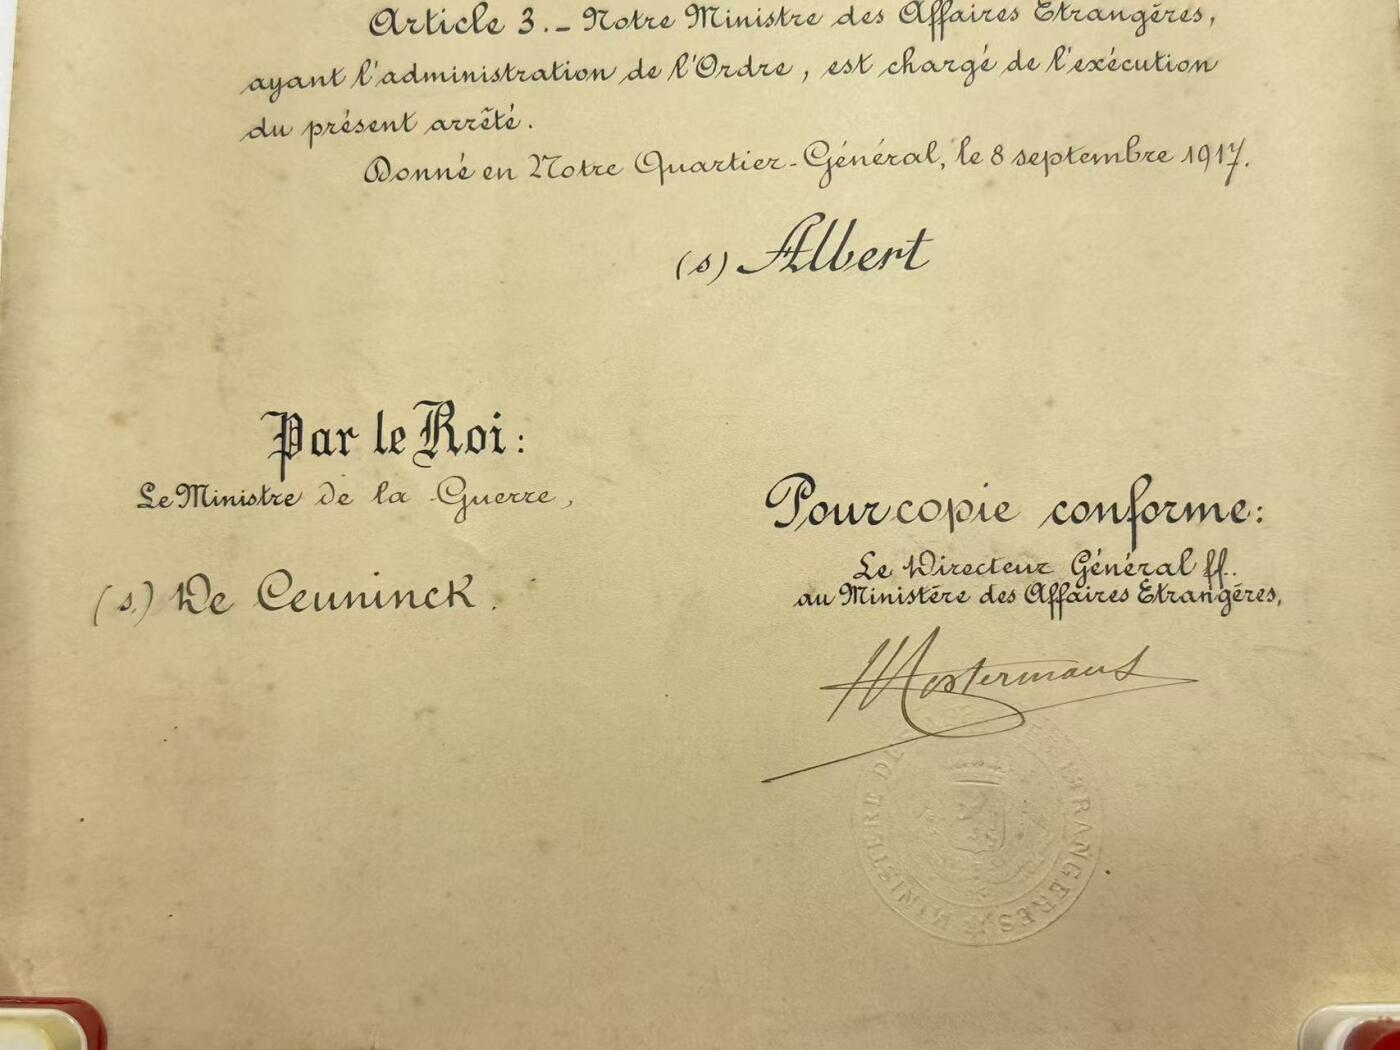 Article 3._ Notre Ministre des Affaires Etrangéres,
ayant l'administration de l'Ordre, est chargé de l'exécution
du présent arrêté.
Donné en Notre Quartier-Général, le 8 septembre 1917.
(s) Albert
Par le Roi:
Le Ministre de la Guerre,
(s.) De Ceuninck.
Pour copie conforme:
Le Directeur Général ff.
au Ministére des Affaires Etrangéres,
Mostermans
MINISTERE DE ETRANGERES